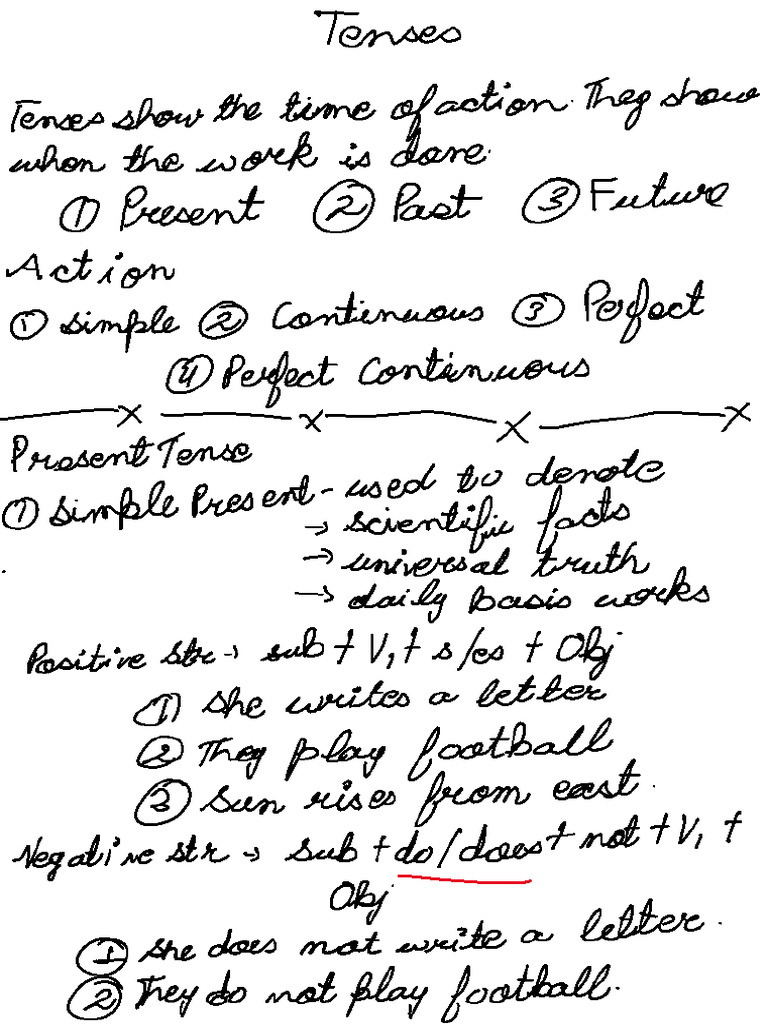 Tenses
Tenses show the time of action. They show
when the work is done.
① Present ② Past ③ Future
Action
① Simple ② Continuous ③ Perfect
④ Perfect Continuous
Present Tense
① Simple Present - used to denote
→ scientific facts
→ universal truth
→ daily basis works
Positive str → sub + V₁ + s/es + Obj
① She writes a letter
② They play football
③ Sun rises from east.
Negative str → sub + do/does + not + V₁ +
Obj
① She does not write a letter.
② They do not play football.